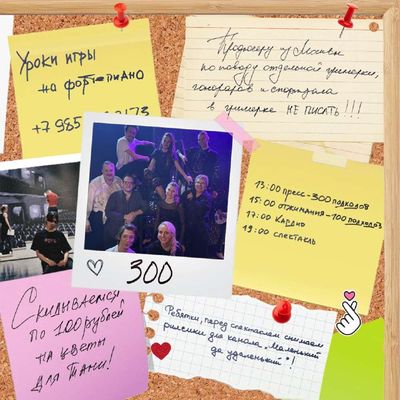 Уроки игры
на фортепиано
+7 985
Продюсеру из Москвы
по поводу отдельной гримерки,
гонораров и спорткара
в гримерке НЕ ПИСАТЬ!!!
13:00 пресс-300 подходов
15:00 отжимания-100 подходов
17:00 кардио
19:00 спектакль
300
Скидываемся
по 100 рублей
на цветы
для Тани!
Ребятки, перед спектаклем снимаем
рилсики для канала "Маленький
да удаленький"!